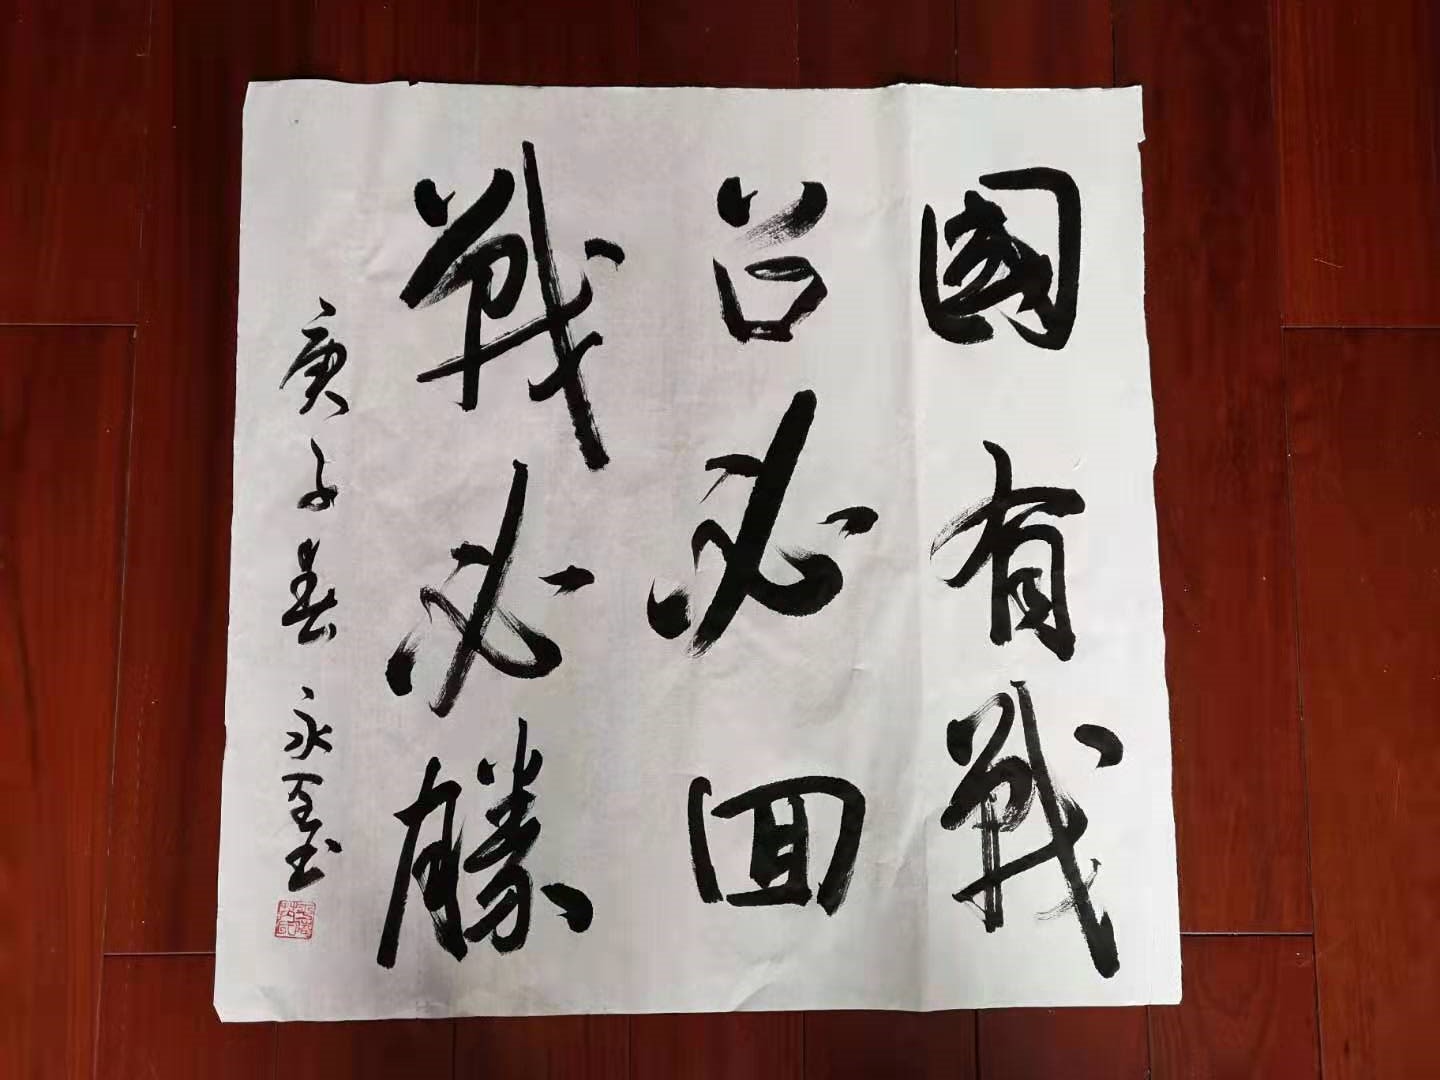 國有戰
召必回
戰必勝
庚子春永